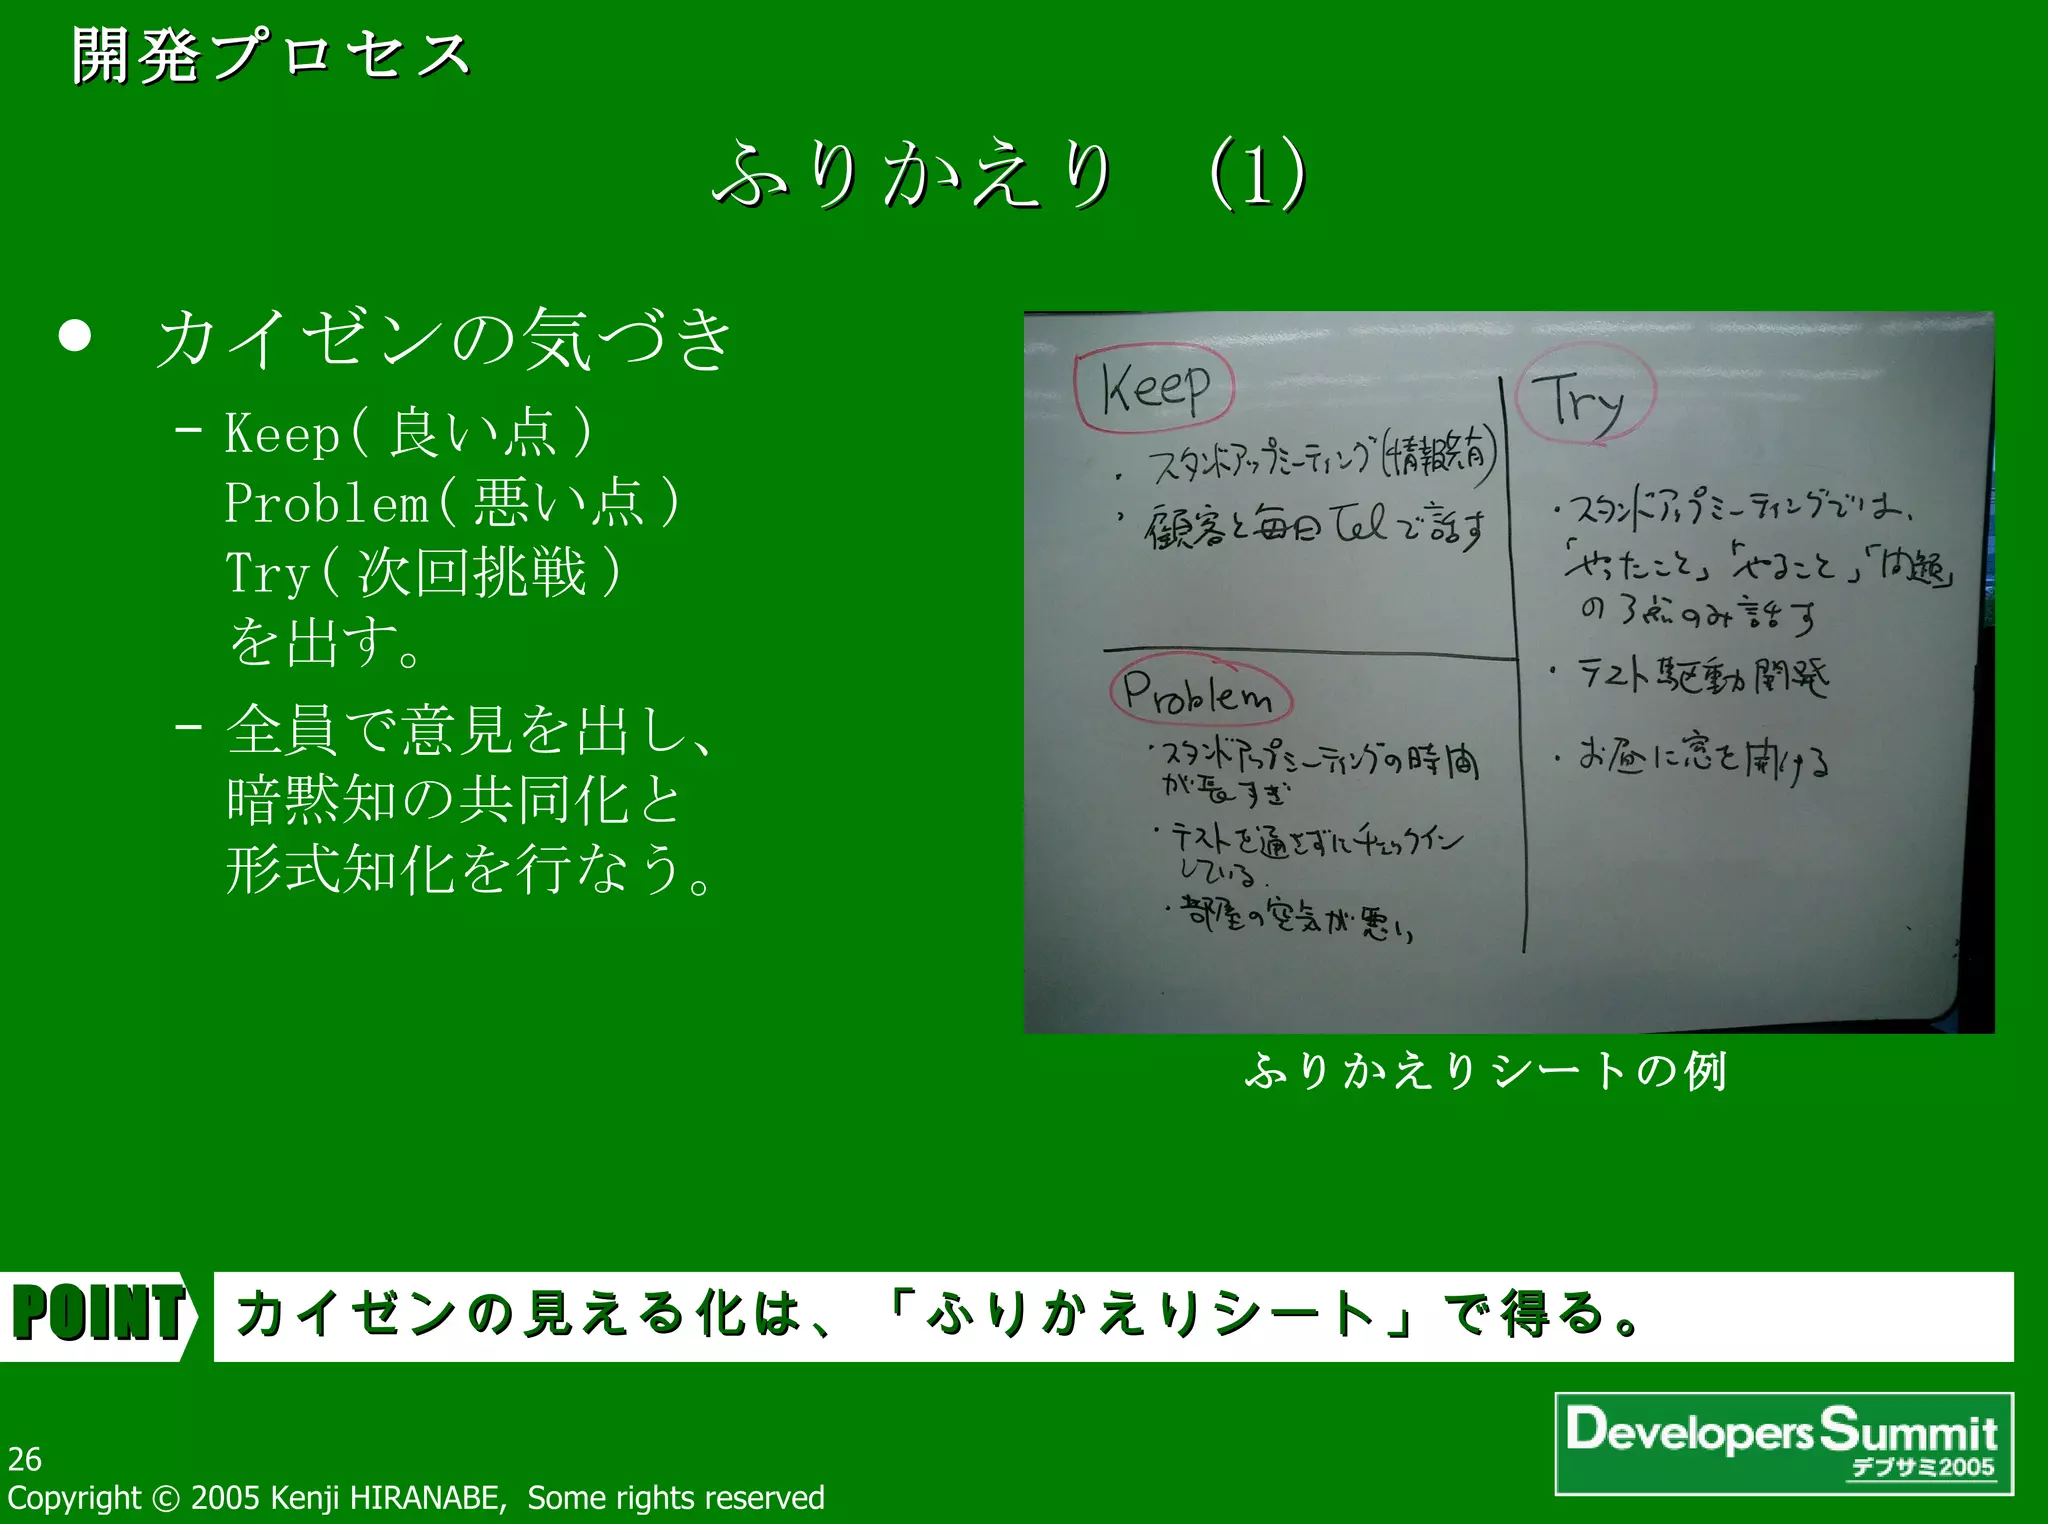 開発プロセス
ふりかえり (1)
• カイゼンの気づき
– Keep( 良い点 )
Problem( 悪い点 )
Try( 次回挑戦 )
を出す。
– 全員で意見を出し、
暗黙知の共同化と
形式知化を行なう。
Keep
・スタンドアップミーティング(情報共有)
・顧客と毎日Telで話す
Problem
・スタンドアップミーティングの時間
が長すぎ
・テストを通さずにチェックイン
している.
・部屋の空気が悪い
Try
・スタンドアップミーティングでは、
「やったこと」「やること」「問題」
の3点のみ話す
・テスト駆動開発
・お昼に窓を開ける
ふりかえりシートの例
POINT カイゼンの見える化は、「ふりかえりシート」で得る。
26
Copyright © 2005 Kenji HIRANABE, Some rights reserved
Developers Summit
デブサミ2005